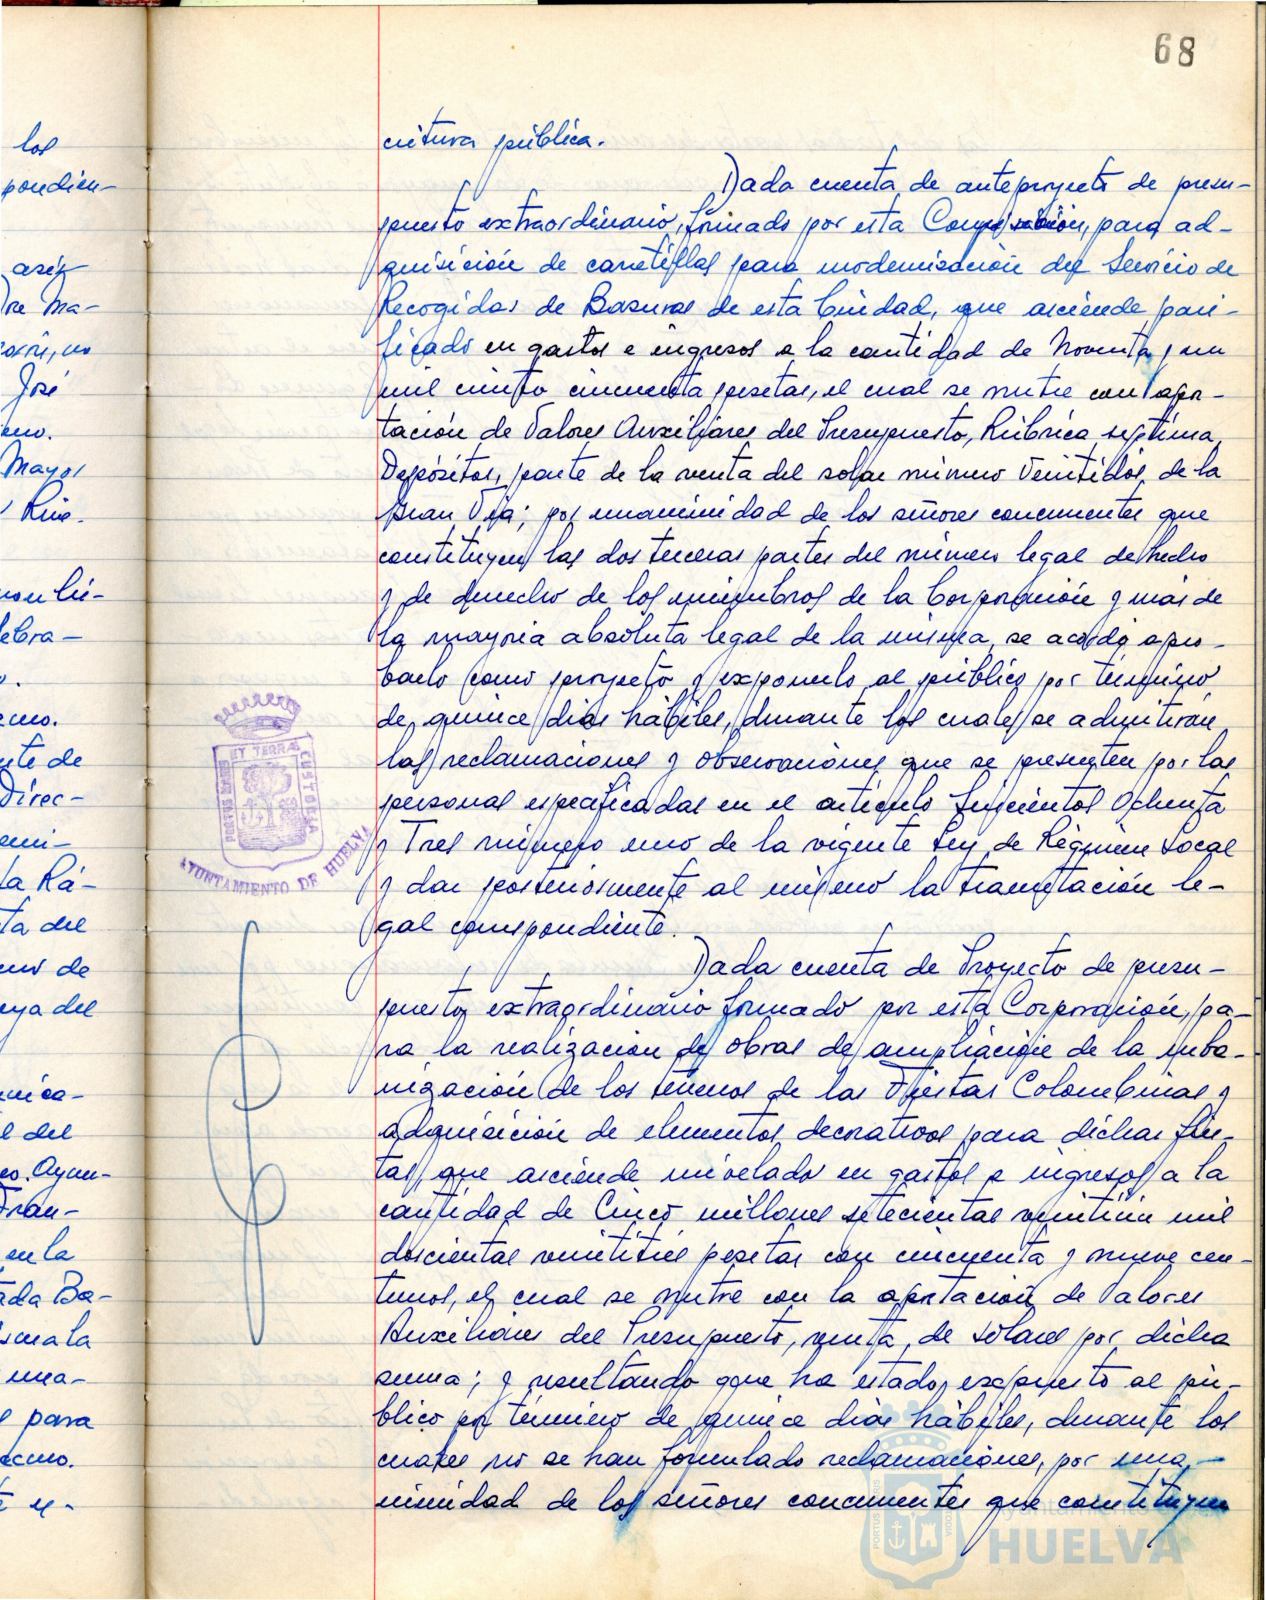 68
critura pública.
Dada cuenta de anteproyecto de presu-
puesto extraordinario, formado por esta Corporación, para ad-
quisición de carretillas para modernización del Servicio de
Recogidas de Basuras de esta Ciudad, que asciende pari-
ficado en gastos e ingresos a la cantidad de Noventa y un
mil ciento cincuenta pesetas, el cual se nutre con apor-
tación de Valores Auxiliares del Presupuesto, Rúbrica septima,
Depósitos, parte de la venta del solar número Veintidós, de la
Gran Vía; por unanimidad de los señores concurrentes que
constituyen las dos terceras partes del número legal de hecho
y de derecho de los miembros de la Corporación y más de
la mayoria absoluta legal de la misma, se acordó apro-
barlo como proyecto y exponerlo al público por término
de quince días hábiles, durante los cuales se admitirán
las reclamaciones y observaciones que se presenten por las
personas especificadas en el artículo Seiscientos Ochenta
y Tres número uno de la vigente Ley de Régimen Local
y dar posteriormente al mismo la tramitación le-
gal correspondiente.
Dada cuenta de Proyecto de presu-
puesto extraordinario formado por esta Corporación, pa-
ra la realización de obras de ampliación de la urba-
nización de los terrenos de las Fiestas Colombinas y
adquisición de elementos decorativos para dichas fies-
tas, que asciende nivelado en gastos e ingresos a la
cantidad de Cinco millones setecientas veintiun mil
doscientas veintitrés pesetas con cincuenta y nueve cen-
timos, el cual se nutre con la aportación de Valores
Auxiliares del Presupuesto, venta de solares por dicha
suma; y resultando que ha estado expuesto al pú-
blico por término de quince días hábiles, durante los
cuales no se han formulado reclamaciones, por una-
nimidad de los señores concurrentes que constituyen
los
pondien-
José
Mayor
lebra-
nte de
Direc-
la Rá-
ta del
eya del
l del
Fran-
en la
ada Ba-
una-
para
PORTUS MARIS ET TERRAE CUSTODIA
AYUNTAMIENTO DE HUELVA
Ayuntamiento
HUELVA